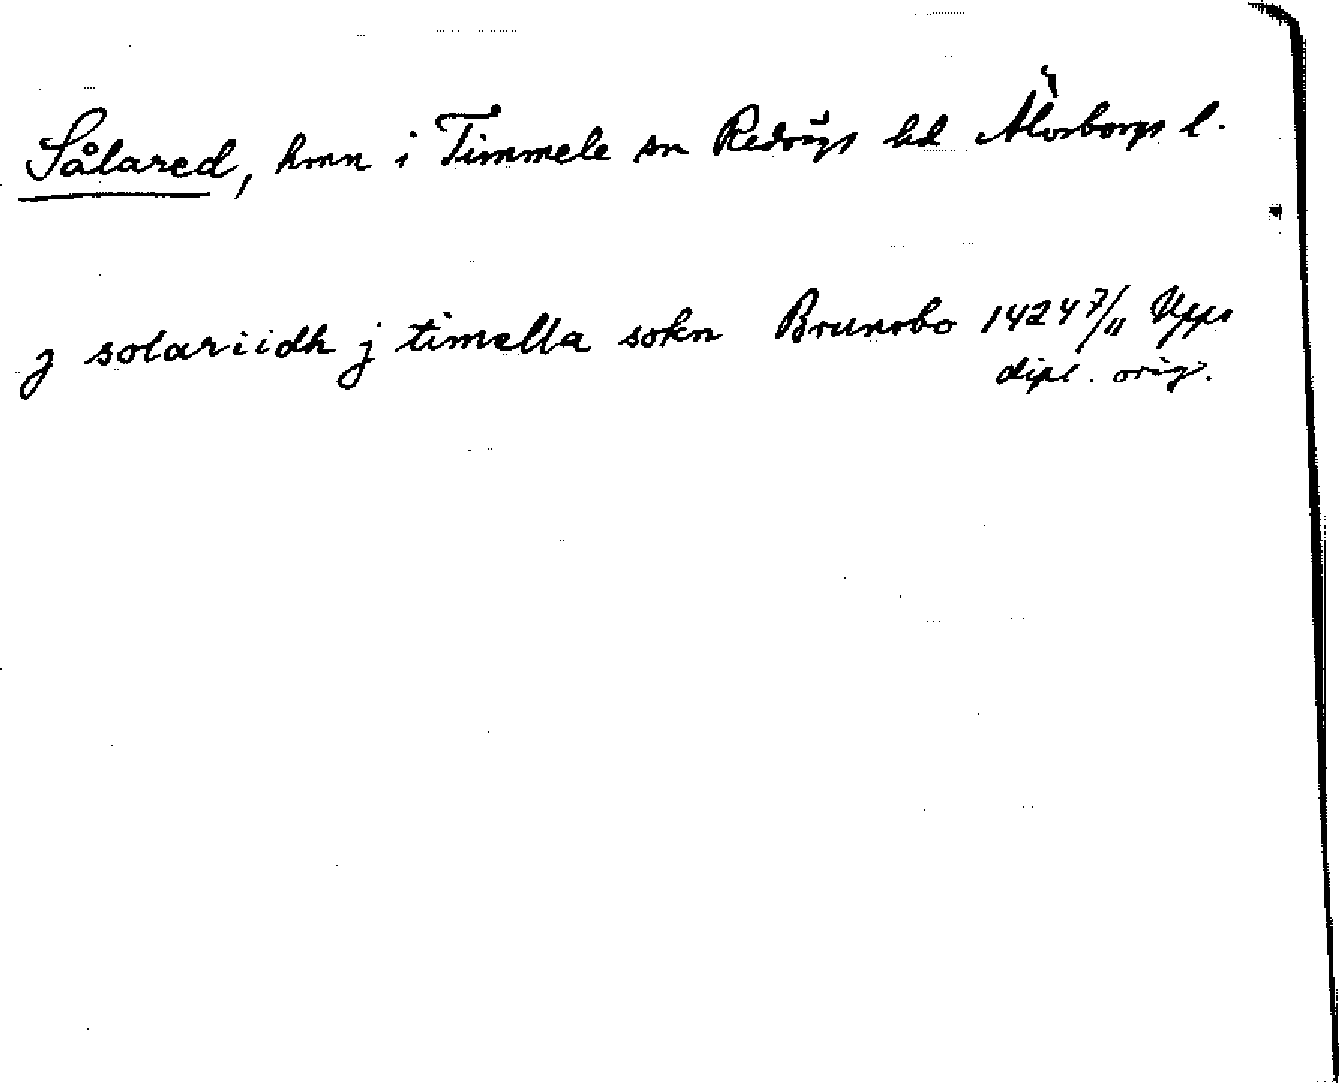 Sålared, hmn i Timmele sn Redvägs hd Älvsborgs l.
j solariidh j timella sokn Brunsbo 1424 7/11 Upps
dipl. orig.